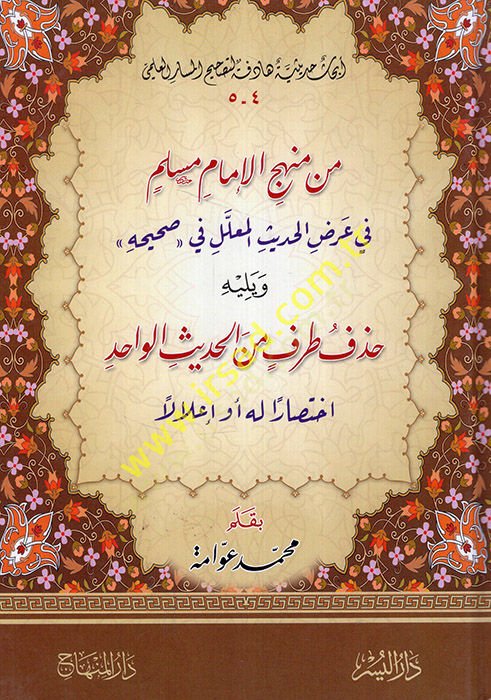 أبحاث حديثية هادفة لتصحيح المسار العلمي
٤ - ٥
من منهج الإمام مسلم
في عَرضِ الحديثِ المعلَّلِ في «صحيحه»
وَيَليْهِ
حذفُ طرفٍ مِنَ الحديثِ الواحدِ
اختصارًا له أو إعلالاً
بقَلَم
محمد عوّامة
دَارُ اليُسْر
دَارُ المِنْهَاجِ
www.irsad.com.tr